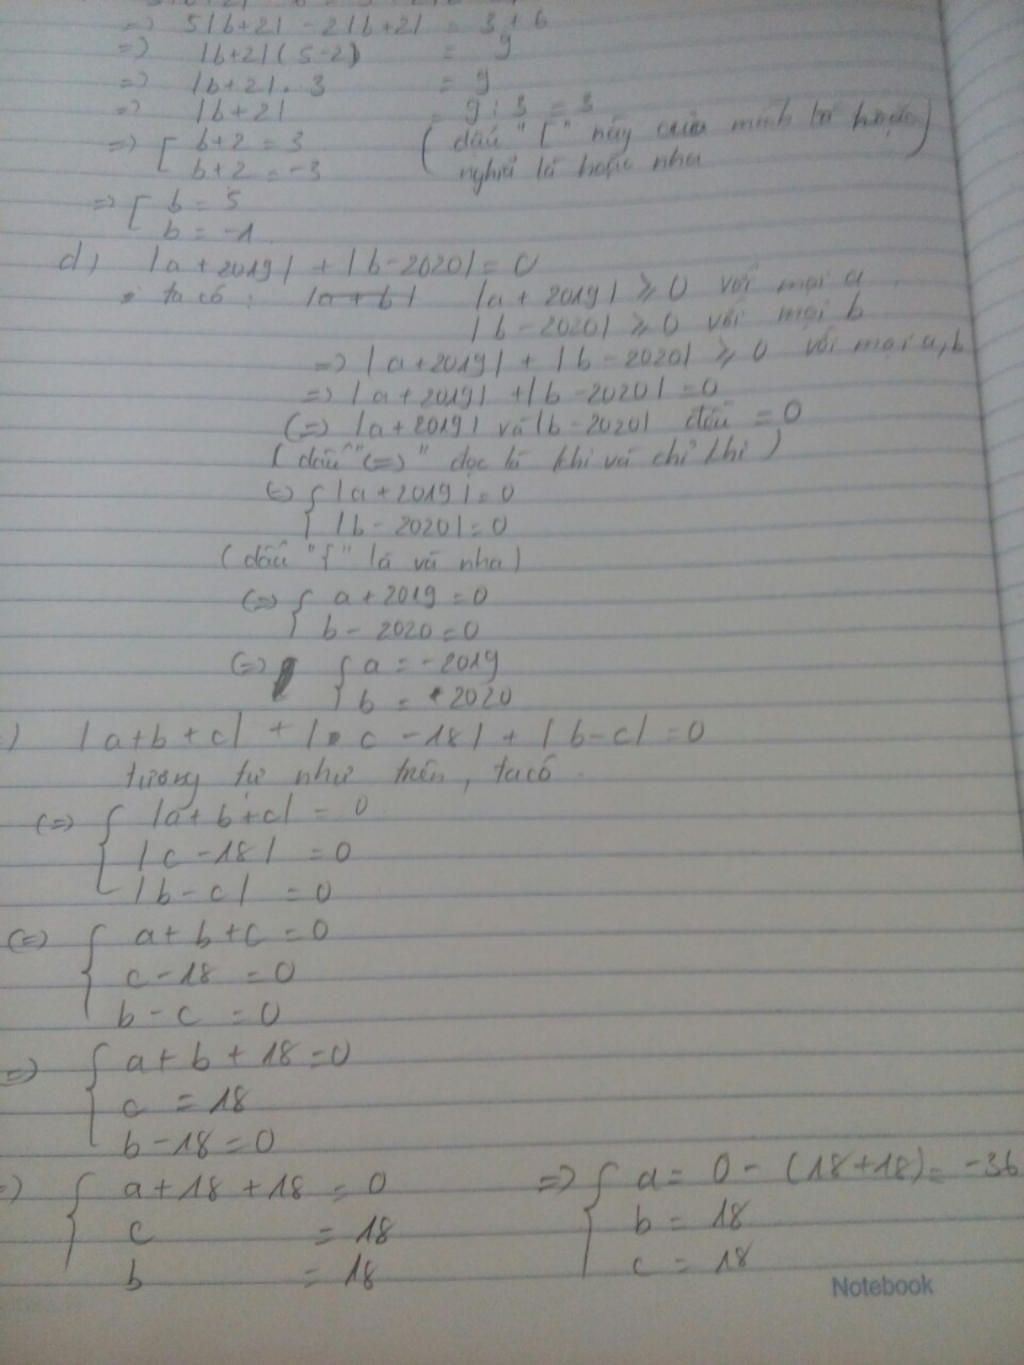 => 5|b+2| - 2|b+2| = 3+6
=> |b+2|(5-2) = 9
=> |b+2|. 3 = 9
=> |b+2| 9:3 = 3
=> [ b+2 = 3 (dấu "[" này của mình là hoặc
b+2 = -3 nghĩa là hoặc nha)
=> [ b = 5
b = -1
d) |a+2019| + |b-2020| = 0
ta có: |a+b| |a+2019| ≥ 0 với mọi a
|b-2020| ≥ 0 với mọi b
=> |a+2019| + |b-2020| ≥ 0 với mọi a,b
=> |a+2019| + |b-2020| = 0
<=> |a+2019| và |b-2020| đều = 0
(dấu "<=>" đọc là khi và chỉ khi)
<=> { |a+2019| = 0
|b-2020| = 0
(dấu "{" là và nha)
<=> { a+2019 = 0
b-2020 = 0
<=> { a = -2019
b = 2020
) |a+b+c| + |c-18| + |b-c| = 0
tương tự như trên, ta có
<=> { |a+b+c| = 0
|c-18| = 0
|b-c| = 0
<=> { a+b+c = 0
c-18 = 0
b-c = 0
=> { a+b+18 = 0
c = 18
b-18 = 0
=> { a+18+18 = 0
c = 18
b = 18
=> { a = 0-(18+18) = -36
b = 18
c = 18
Notebook